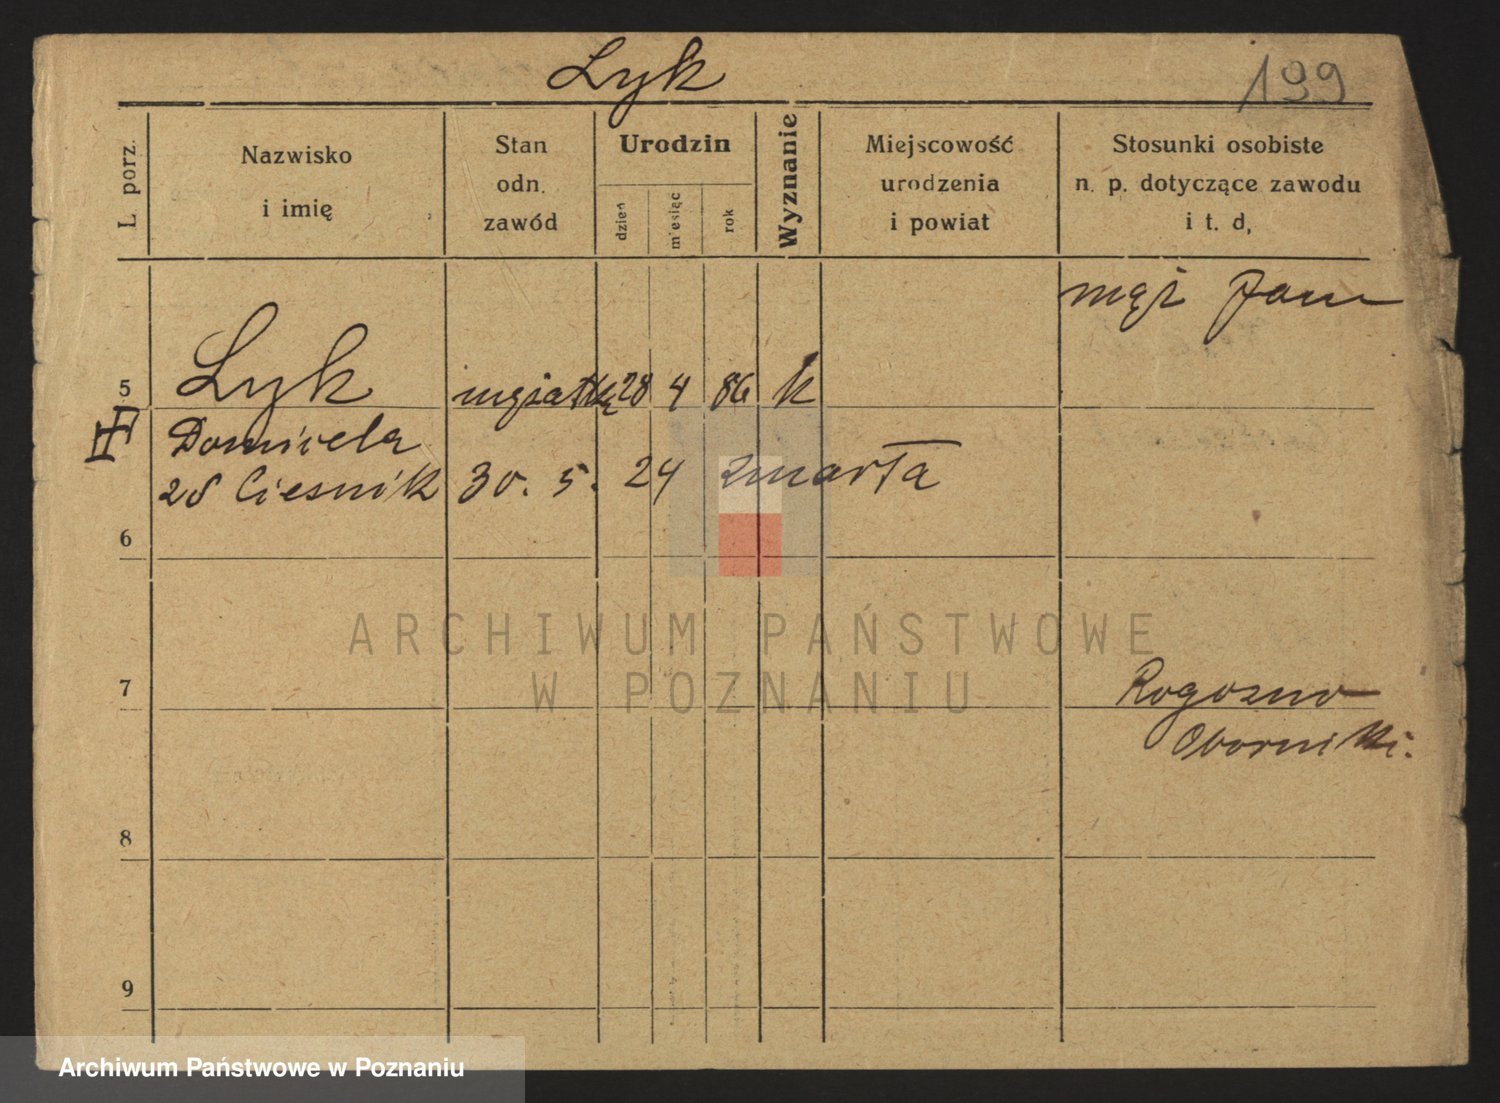 Lyk
199
L. porz.
Nazwisko
i imię
Stan
odn.
zawód
Urodzin
dzień
miesiąc
rok
Wyznanie
Miejscowość
urodzenia
i powiat
Stosunki osobiste
n. p. dotyczące zawodu
i t. d,
mąż Jan
5 Lyk 28 4 86 k
Domicela
zd Ciesnik 30. 5. 24 zmarła
6
ARCHIWUM PAŃSTWOWE
W POZNANIU
7 Rogozno
Oborniki.
8
9
Archiwum Państwowe w Poznaniu